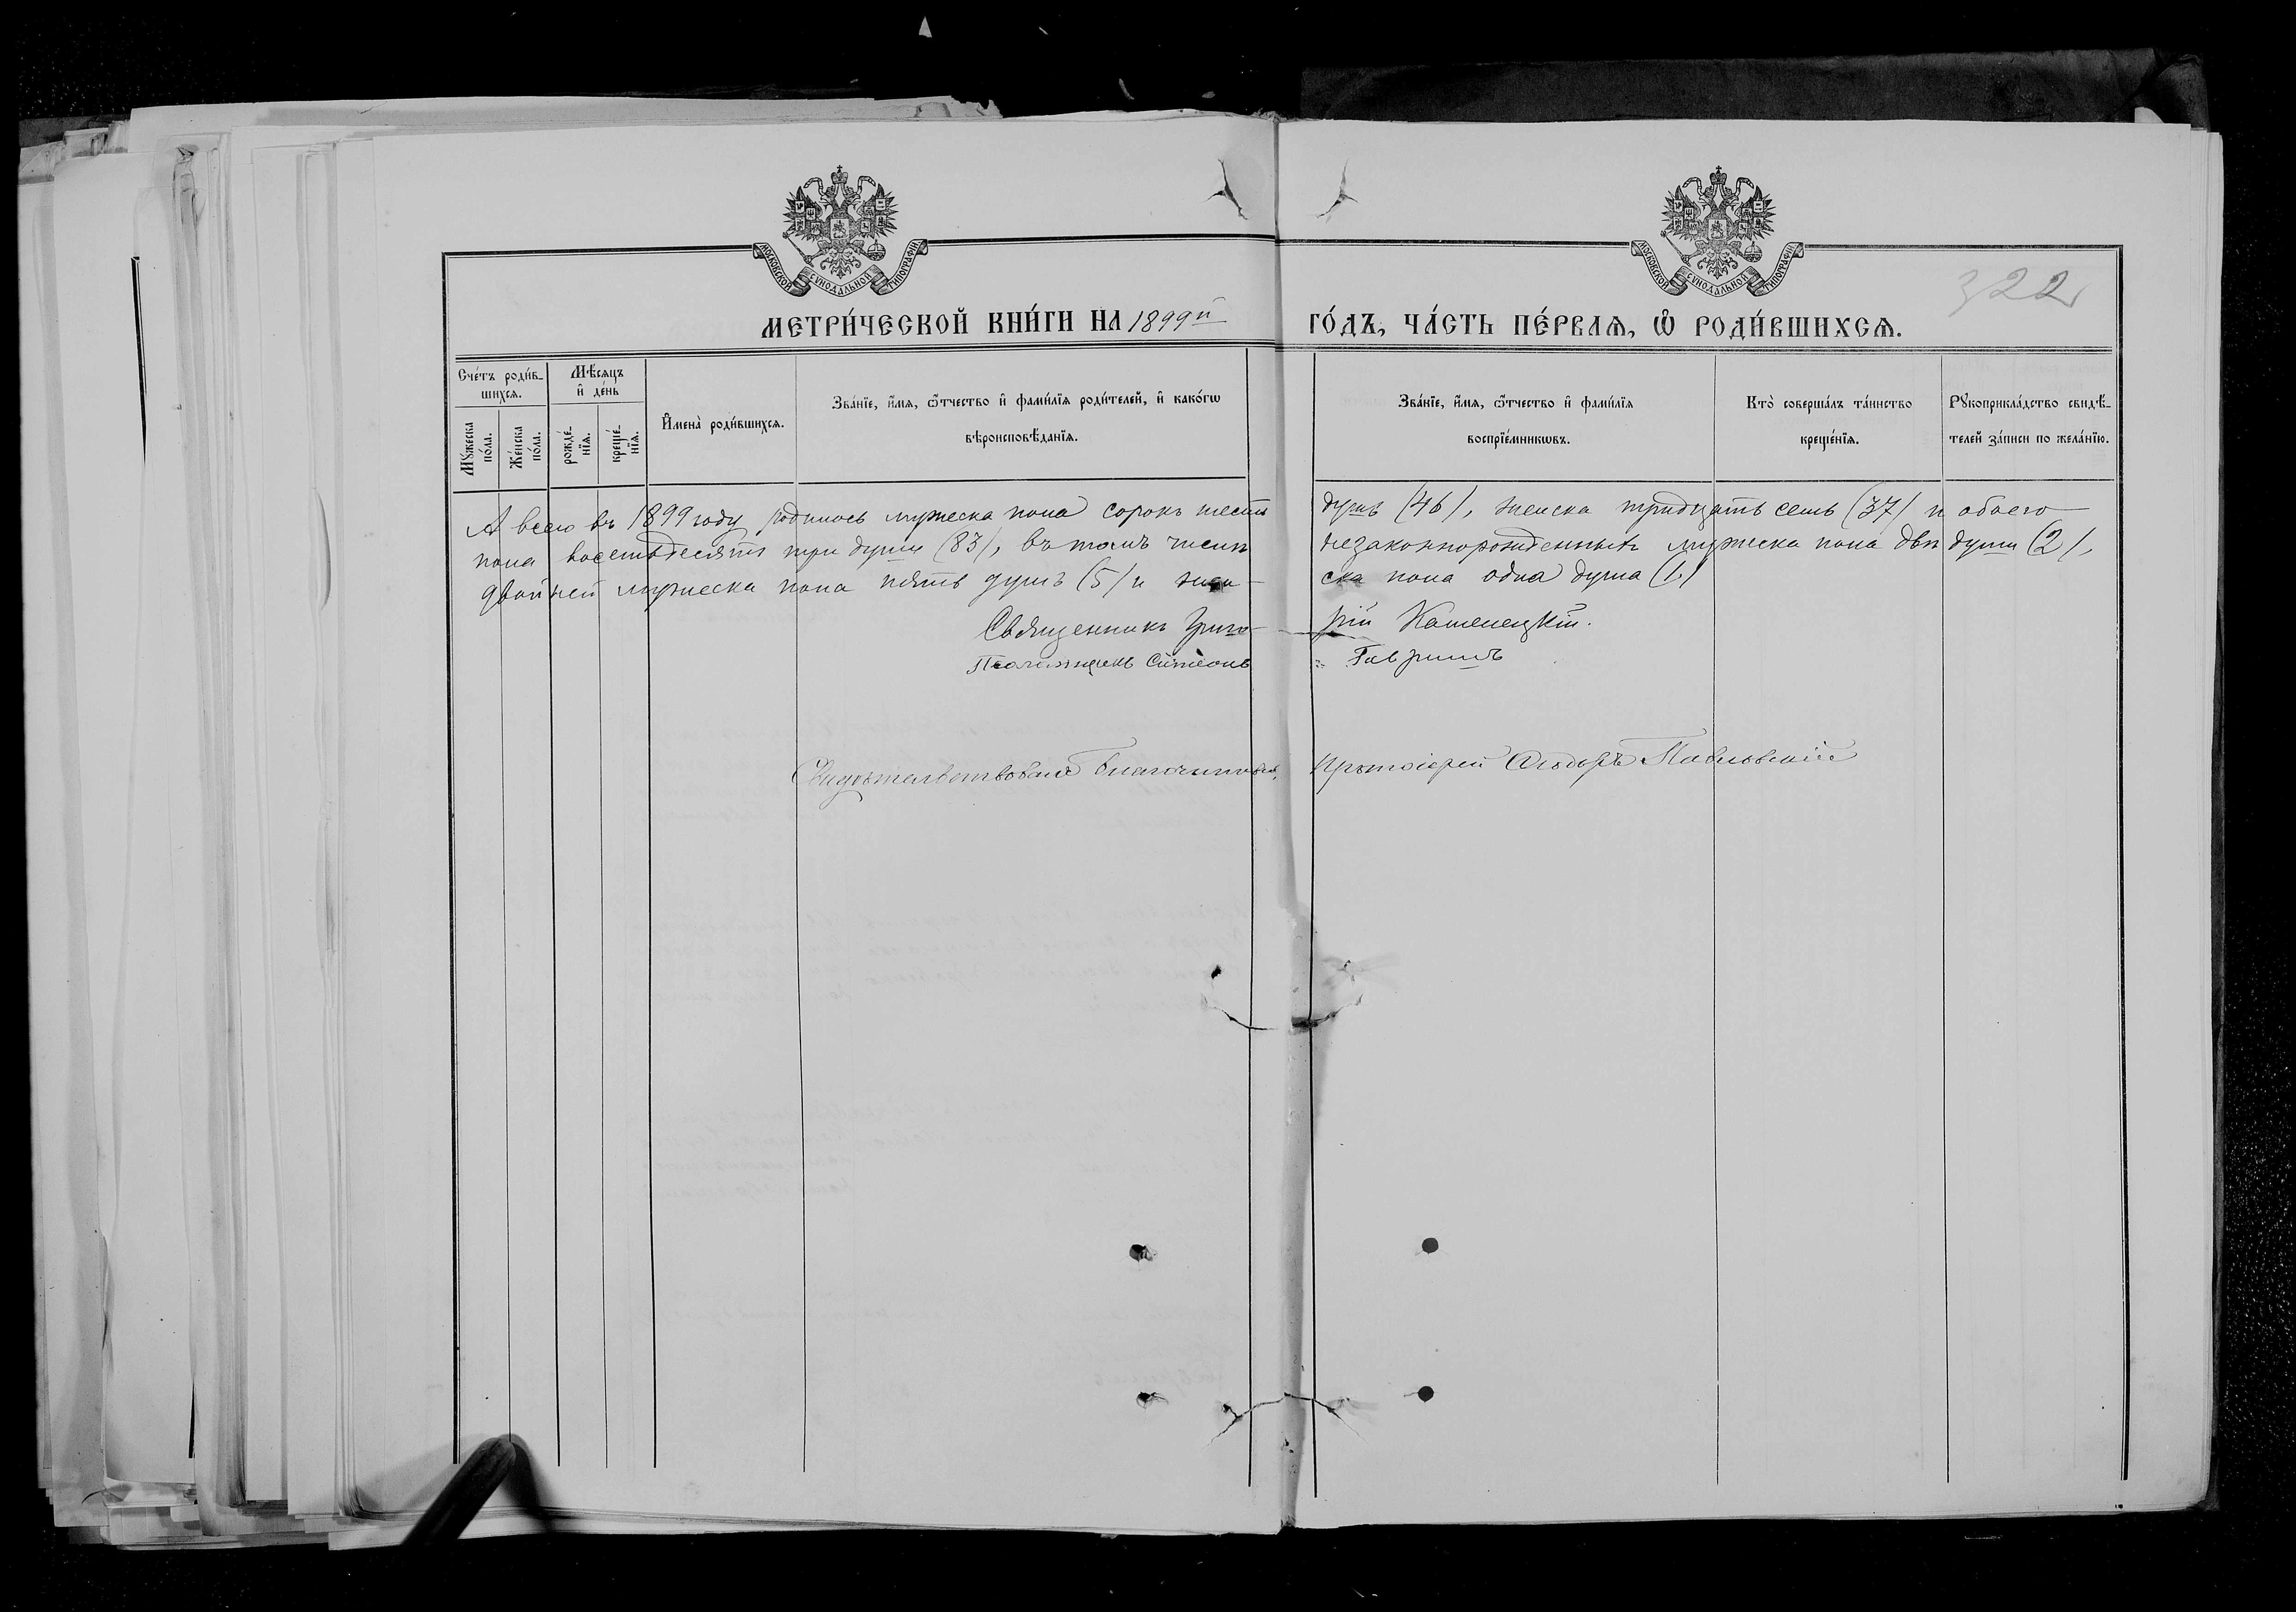 МОСКОВСКОЙ СѴНОДАЛЬНОЙ ТИПОГРАФІИ
МОСКОВСКОЙ СѴНОДАЛЬНОЙ ТИПОГРАФІИ
322
МЕТРИ́ЧЕСКОЙ КНИ́ГИ НА 1899й ГО́ДЪ, ЧА́СТЬ ПЕ́РВАЯ, Ѡ҆ РОДИ́ВШИХСЯ.
Сче́тъ роди́в-
шихся.
Мꙋ́жеска по́ла.
Же́нска по́ла.
Мѣ́сяцъ
и҆ де́нь
рожде́-
нїя.
креще́-
нїя.
И҆мена̀ роди́вшихся.
Зва́нїе, и҆́мя, ѻ҆́тчество и҆ фами́лїя роди́телей, и҆ како́гѡ
вѣроисповѣ́данїя.
Зва́нїе, и҆́мя, ѻ҆́тчество и҆ фами́лїя
воспрїе́мникѡвъ.
Кто̀ соверша́лъ та́инство
креще́нїя.
Рꙋкоприкла́дство свидѣ́-
телей за́писи по жела́нїю.
А всего въ 1899 году родилось мужеска пола сорокъ шесть душъ (46), женска тридцать семь (37) и обоего
пола восемьдесятъ три души (83), въ томъ числѣ незаконнорожденныхъ мужеска пола двѣ души (2),
двойней мужеска пола пять душъ (5) и жен-ска пола одна душа (1)
Священникъ Григо-рій Каменецкій.
Псаломщикъ Симеонъ Гавришъ
Свидѣтельствовалъ Благочинный, Протоіерей Ѳеодоръ Павловскій